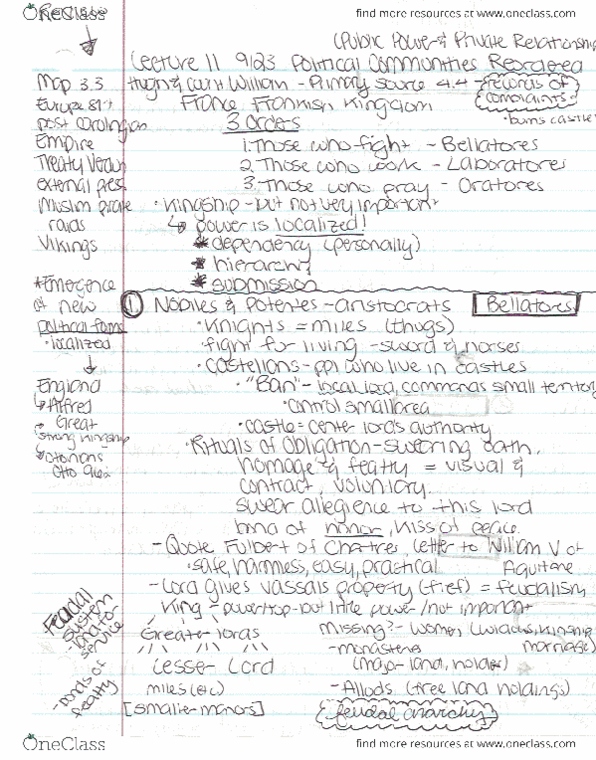 OneClass
find more resources at www.oneclass.com
(Public Power & Private Relationship
Lecture 11 9/23 Political Communities Reordered
Hugh & Count William - Primary Source 4.4 - records of complaints
• burns castle
France Frankish Kingdom
3 Orders
1. Those who fight - Bellatores
2. Those who work - Laboratores
3. Those who pray - Oratores
• Kingship - but not very important
↳ power is localized!
* dependency (personally)
* hierarchy
* submission
Map 3.3
Europe
post carolingian
Empire
Treaty Verdun
external pest
Muslim pirate
raids
Vikings
*Emergence
of new
political forms
• localized
↓
England
↳ Alfred
Great
strong kingship
↳ Ottonians
Otto
① Nobiles & Potentes - aristocrats Bellatores
• Knights = miles (thugs)
fight for living - sword & horses
• castellans - ppl who live in castles
• "Ban" - local lord, commands small territory
• control small area
• castle = center lords authority
• Rituals of Obligation - swearing oath,
homage & fealty = visual &
contract, voluntary.
swear allegience to this lord
bond of honor, kiss of peace.
- Quote Fulbert of Chartres, letter to William V of
Aquitane
• safe, harmless, easy, practical
- Lord gives vassals property (fief) = feudalism
King - power top - but little power / not important
Greater lords
Lesser Lord
miles (etc)
[smaller manors]
Missing? - Women, (widows, kinship
marriage)
- monasteries
(major land, holder)
- Allods (free land holdings)
feudal anarchy
Feudal
System
- land for
service
- bonds of
fealty
OneClass
find more resources at www.oneclass.com